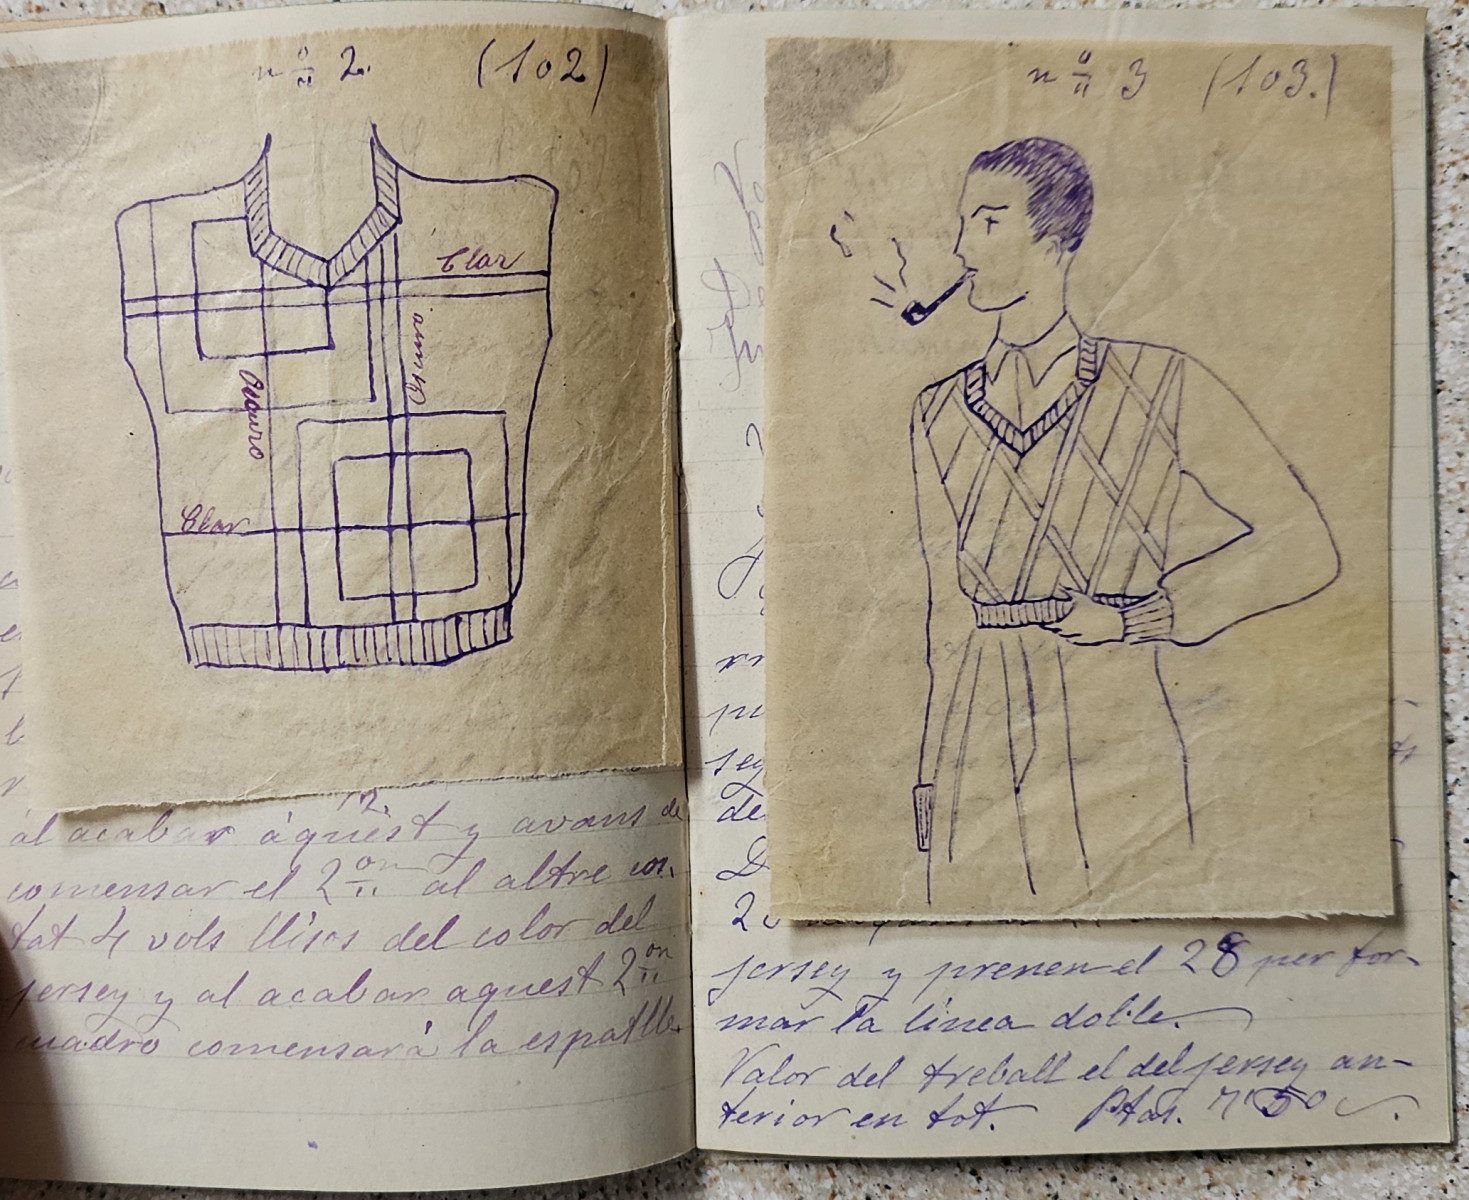 nº 2. (102)
Clar
Obscuro
Clar
12.
al acabar áquest y avans de
comensar el 2on al altre cos.
tat 4 vols llisos del color del
jersey y al acabar aquest 2on
cuadro comensará la espatlle.
nº 3 (103.)
jersey y prenen el 28 per for-
mar la linea doble.
Valor del treball el del jersey an-
terior en tot. Ptas. 7'50